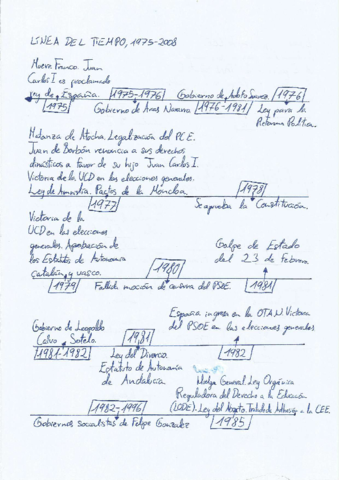 LÍNEA DEL TIEMPO, 1975-2008
Muere Franco. Juan
Carlos I es proclamado
rey de España.
1975-1976
Gobierno de Adolfo Suarez
1976
1975
Gobierno de Arias Navarro
1976-1981
Ley para la
Reforma Política.
Matanza de Atocha. Legalización del PCE.
Juan de Borbón renuncia a sus derechos
dinásticos a favor de su hijo Juan Carlos I.
Victoria de la UCD en las elecciones generales.
Ley de Amnistía. Pactos de la Moncloa.
1978
1977
Se aprueba la Constitución.
Victoria de la
UCD en las elecciones
generales. Aprobación de
los Estatutos de Autonomía
catalán y vasco.
1980
Golpe de Estado
del 23 de Febrero
1979
Fallida moción de censura del PSOE.
1981
España ingresa en la OTAN. Victoria
del PSOE en las elecciones generales
Gobierno de Leopoldo
Calvo Sotelo
1981
1981-1982
Ley del Divorcio.
Estatuto de Autonomía
de Andalucía
1982
Huelga General. Ley Orgánica
Reguladora del Derecho a la Educación
(LODE). Ley del Aborto. Tratado de Adhesión a la CEE.
1982-1996
Gobiernos socialistas de Felipe González
1985